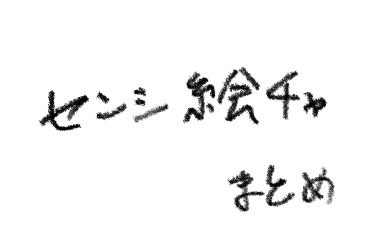 センシ絵チャ
まとめ